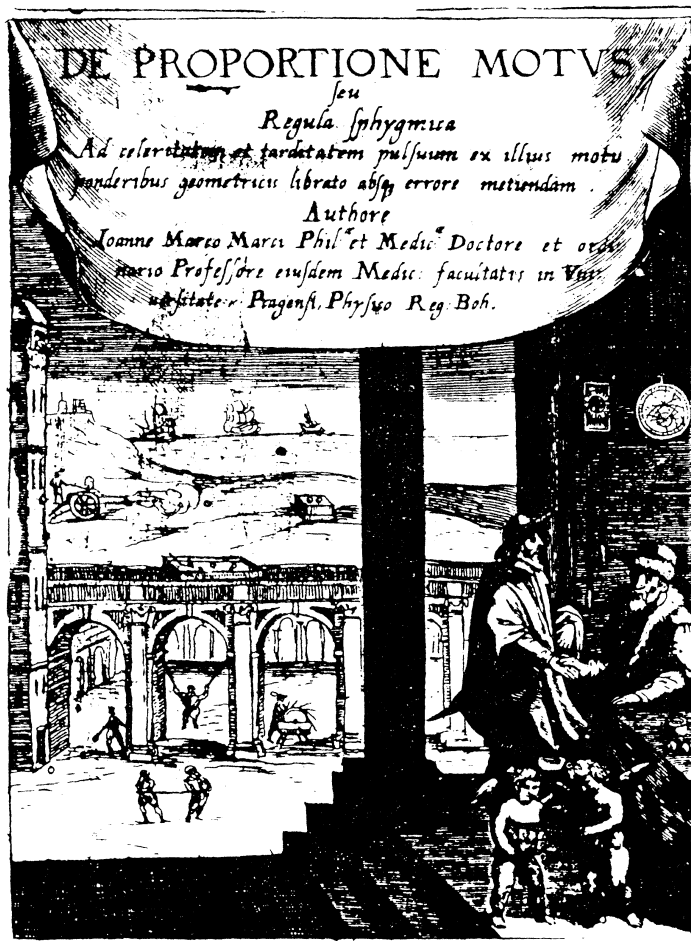 DE PROPORTIONE MOTVS
ſeu
Regula ſphygmica
Ad celeritatem et tarditatem pulſuum ex illius motu
ponderibus geometricis librato abſqꝫ errore metiendam .
Authore
Ioanne Marco Marci Philᵃᵉ et Medicᵃᵉ Doctore et ordi
nario Profeſſore eiuſdem Medic: facultatis in Vni
uerſitate Pragenſi, Phyſico Reg: Boh.